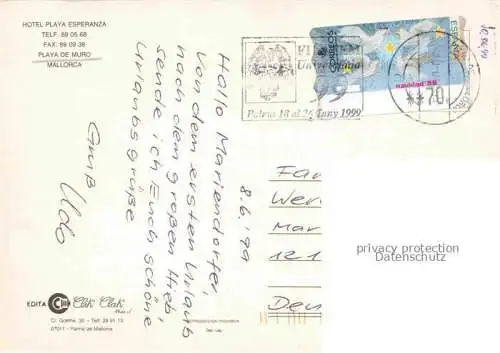 HOTEL PLAYA ESPERANZA
TELF. 89 05 68
FAX: 89 09 38
PLAYA DE MURO
MALLORCA
Hallo Mariendorfer,
von dem ersten Urlaub
nach dem großen Hieb
sende ich Euch schöne
Urlaubsgrüße
Gruß
Udo
8.6.99
CORREOS
ESPAÑA
navidad '98
Universiada
99
Palma 18 al 26 Juny 1999
**70
Fam
Wer
Mar
121
Deu
privacy protection
Datenschutz
EDITA Clik Clak
C/. Goethe, 30 - Telf. 28 91 13
07011 - Palma de Mallorca